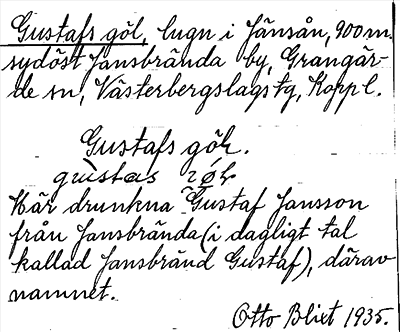 Gustafs göl, lugn i Jänsån, 900 m.
sydöst Jansbrända by, Grangär-
de sn, Västerbergslags tg, Koppl.
Gustafs göl.
gustas
Här drunkna Gustaf Jansson
från Jansbrända (i dagligt tal
kallad Jansbränd Gustaf), därav
namnet.
Otto Blixt 1935.